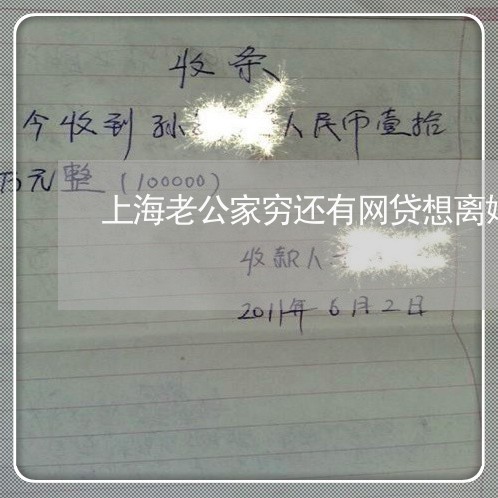 收条
今收到孙 人民币壹拾
万元整（100000）
上海老公家穷还有网贷想离婚
收款人
2011年6月2日